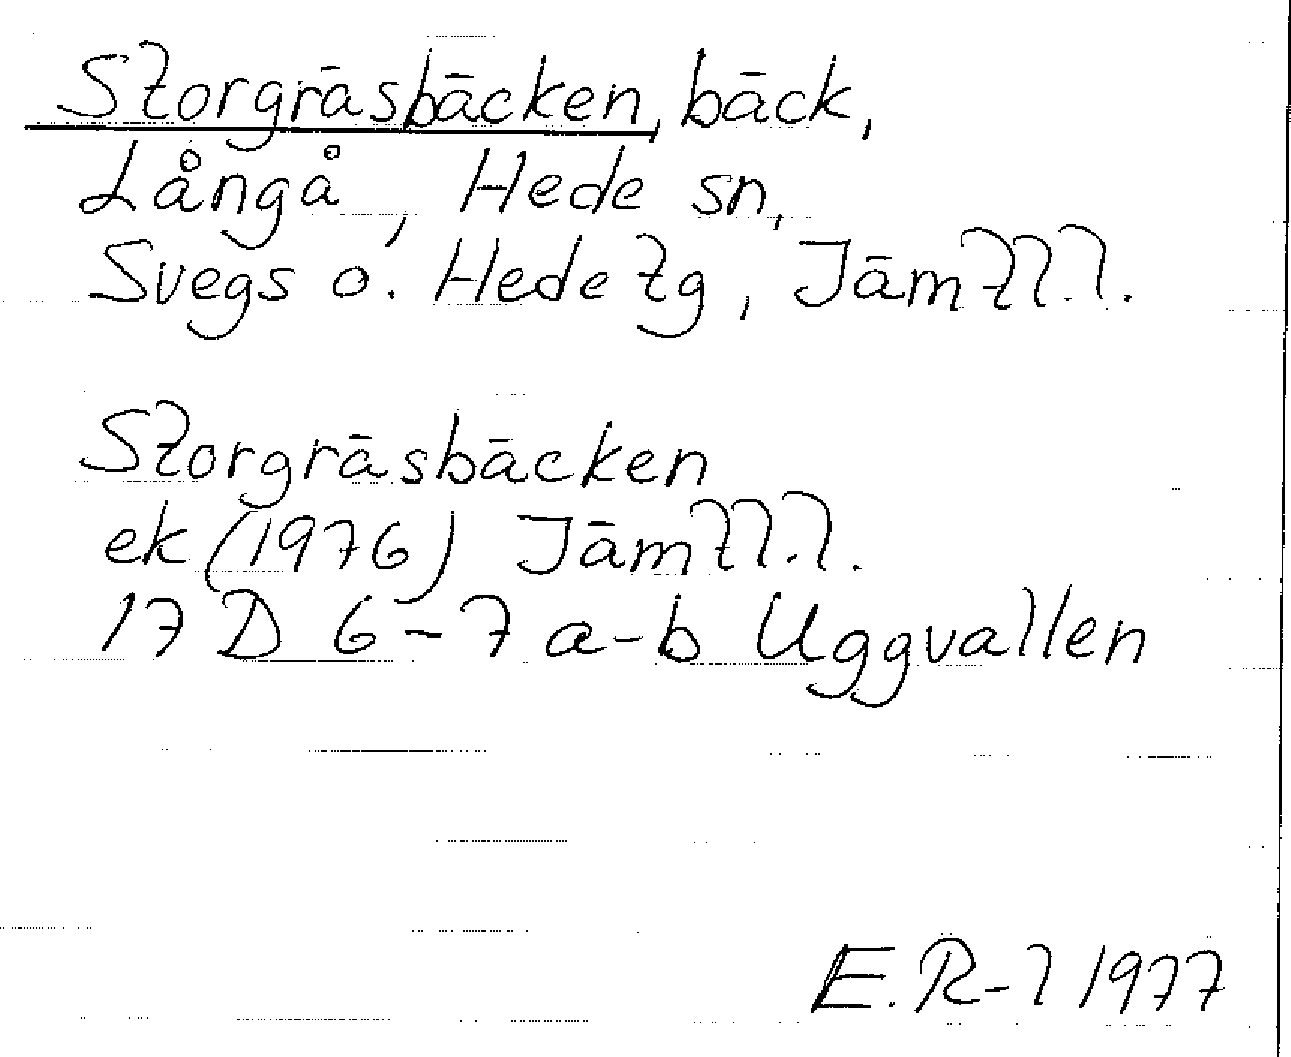 Storgräsbäcken, bäck,
Långå, Hede sn,
Svegs o. Hede tg, Jämtl.l.
Storgräsbäcken
ek (1976) Jämtl.l.
17 D 6-7 a-b Uggvallen
E.R-l 1977